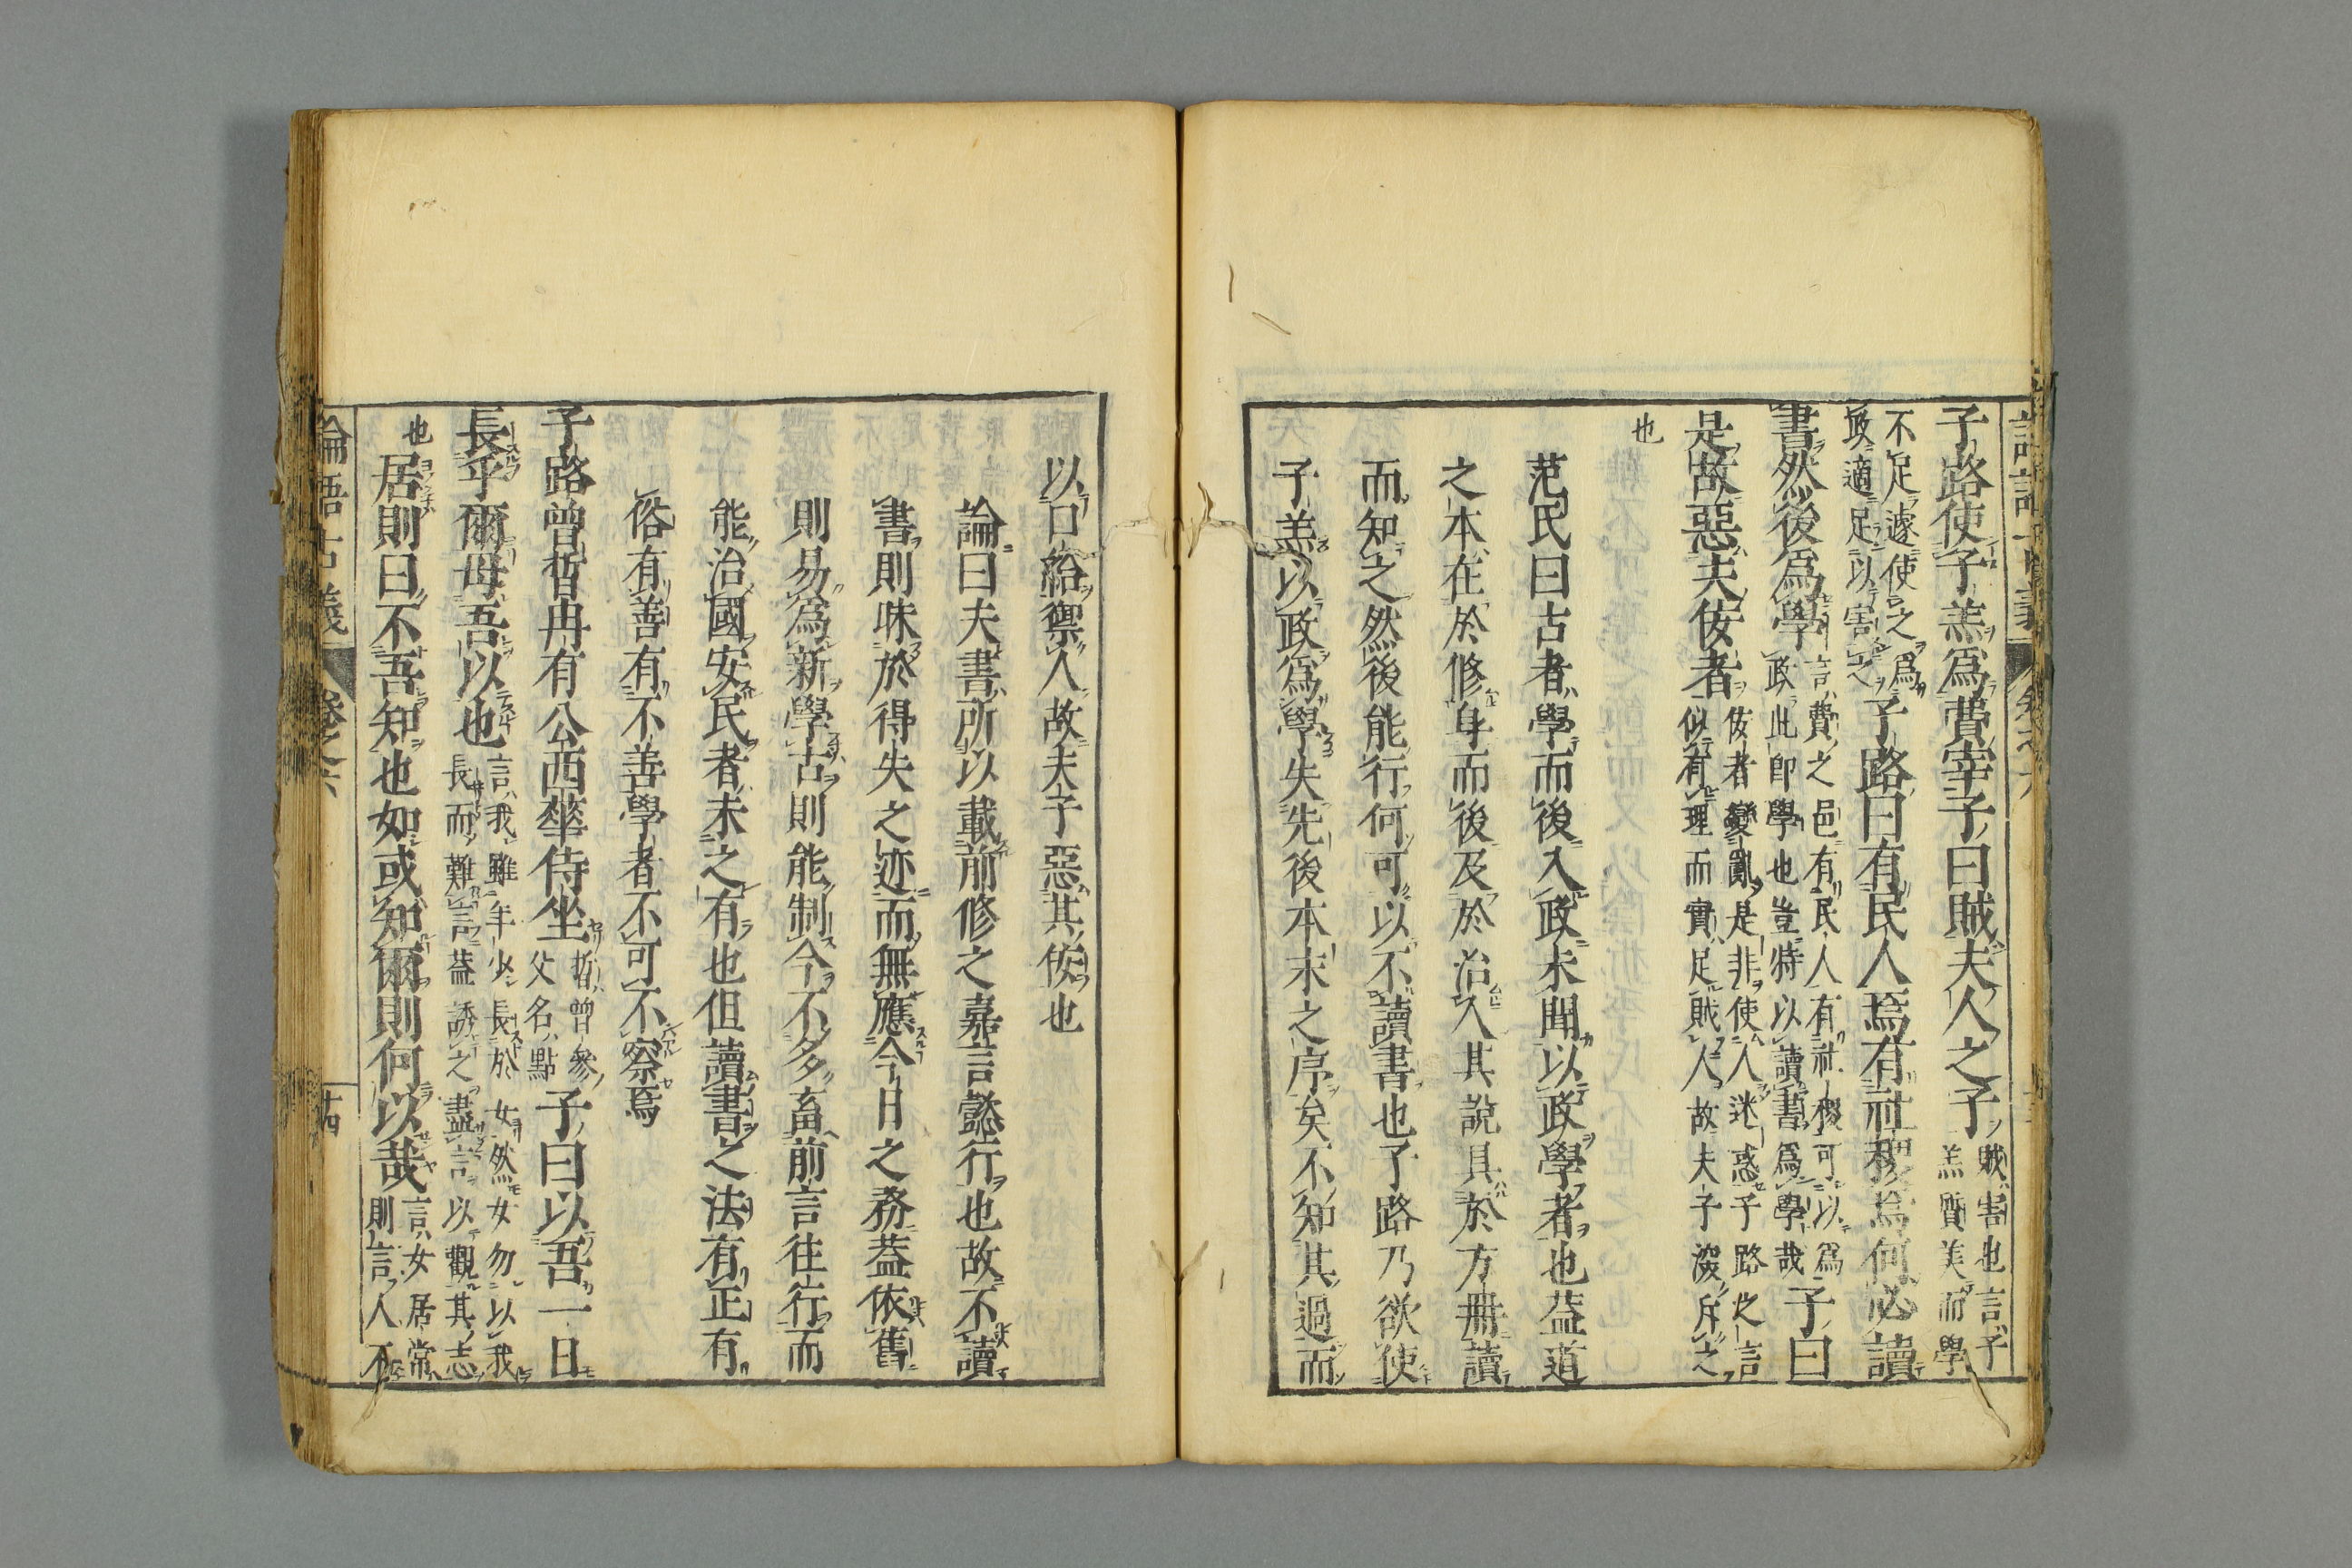 子路使子羔爲費宰子曰賊夫人之子賊害也言子羔質美而學
不足遽使之爲政適足以害之子路曰有民人焉有社稷焉何必讀
書然後爲學言費之邑有民人有社稷可以爲政此即學也豈特以讀書爲學哉子曰
是故惡夫佞者佞者變亂是非使人迷惑子路之言似有理而實足賊人故夫子深斥之
也
范氏曰古者學而後入政未聞以政學者也蓋道
之本在於修身而後及於治人其說具於方冊讀
而知之然後能行何可以不讀書也子路乃欲使
子羔以政爲學失先後本末之序矣不知其過而
以口給禦人故夫子惡其佞也
論曰夫書所以載前修之嘉言懿行也故不讀
書則昧於得失之迹而無應今日之務蓋依舊
則易爲新學古則能制今不多畜前言往行而
能治國安民者未之有也但讀書之法有正有
俗有善有不善學者不可不察焉
子路曾晳冉有公西華侍坐晳曾參父名點子曰以吾一日
長乎爾毋吾以也言我雖年少長於女然女勿以我長而難言蓋誘之盡言以觀其志
也居則曰不吾知也如或知爾則何以哉言女居常則言人不
論語古義 卷之六 十四